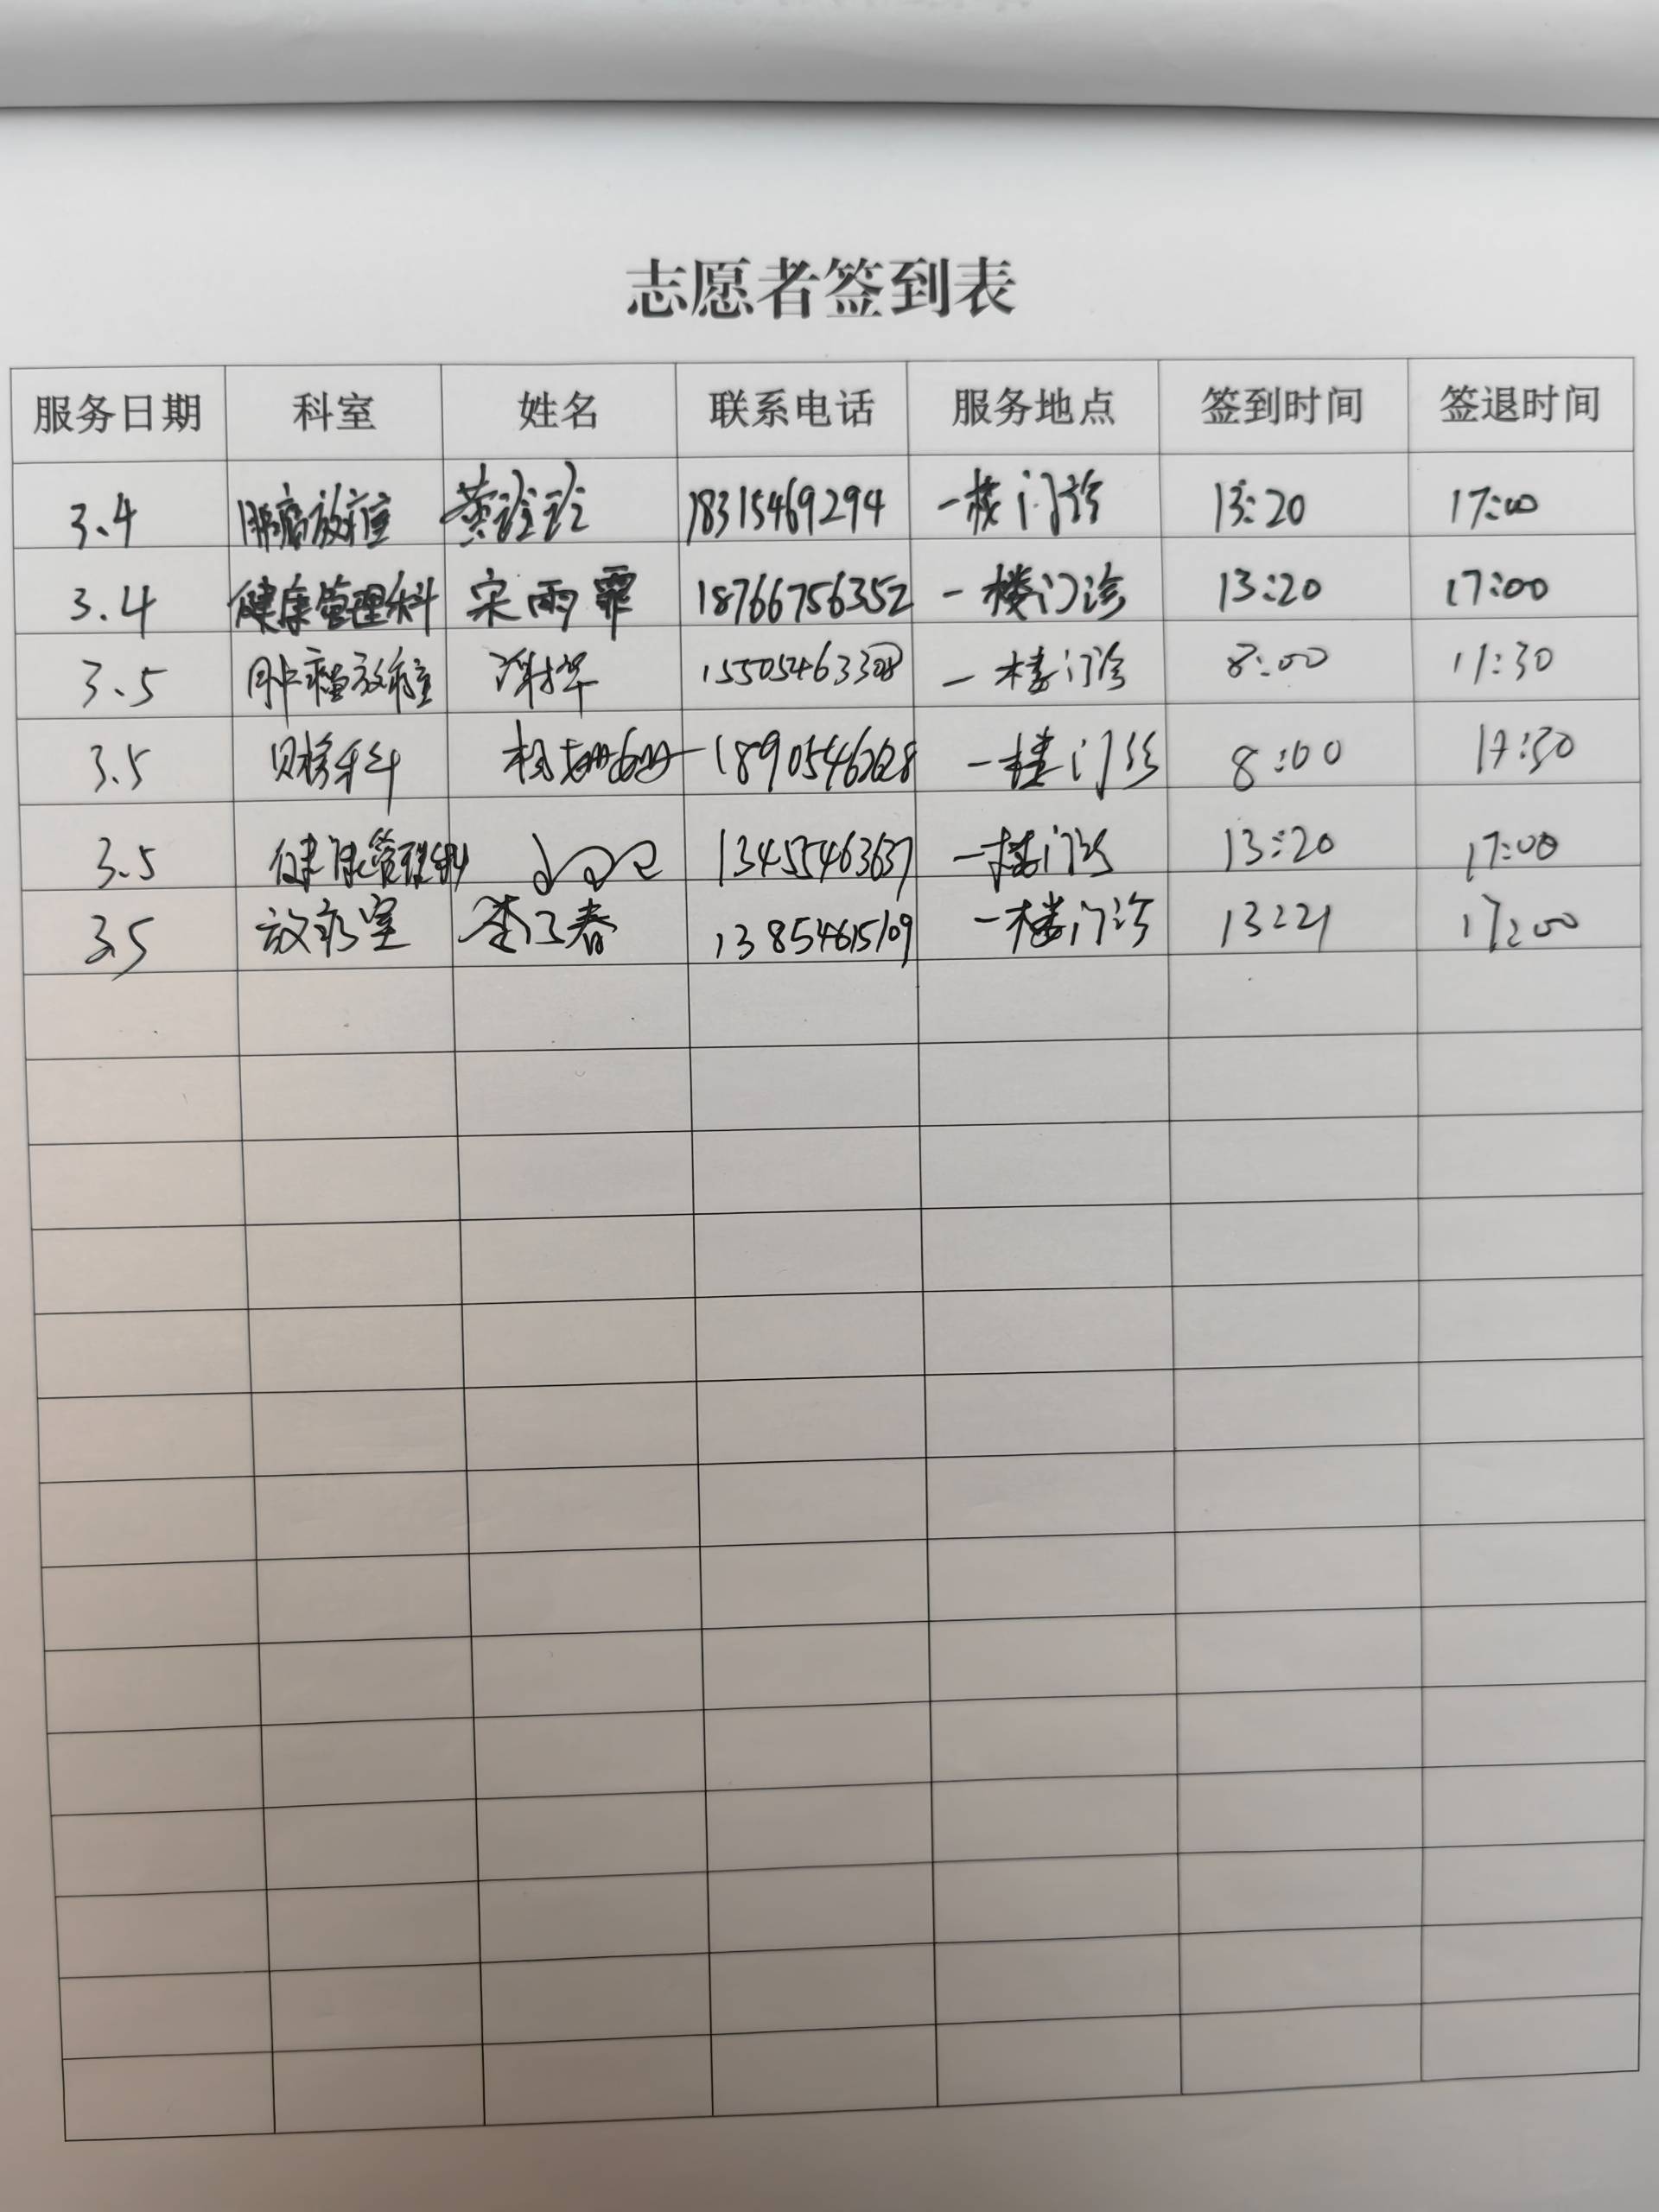 志愿者签到表
服务日期 科室 姓名 联系电话 服务地点 签到时间 签退时间
3.4 肿瘤放疗 18315469294 一楼门诊 13:20 17:00
3.4 健康管理科 宋雨霏 18766756352 一楼门诊 13:20 17:00
3.5 肿瘤放疗 15505463308 一楼门诊 8:00 11:30
3.5 财务科 一楼门诊 8:00
3.5 健康管理科 13455463637 一楼门诊 13:20 17:00
3.5 放疗室 13854615109 一楼门诊 13:21 17:00